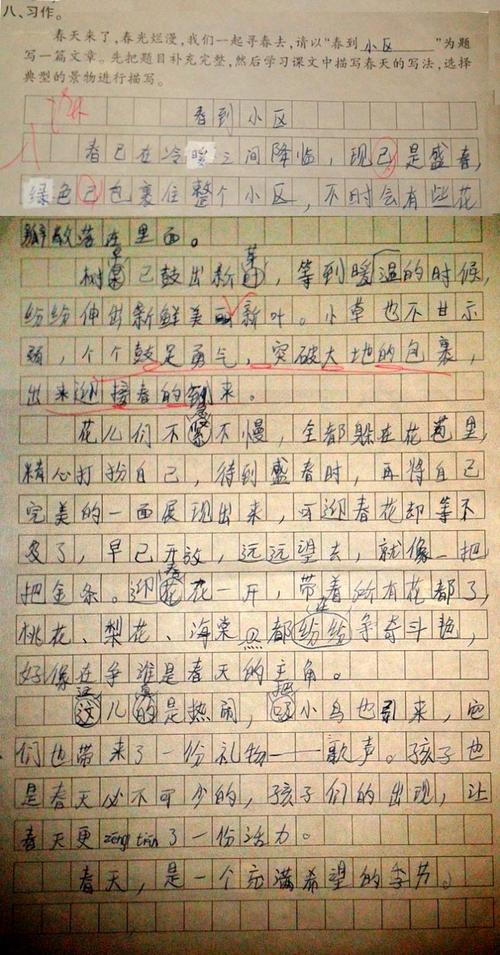 八、习作。
春天来了，春光烂漫，我们一起寻春去，请以“春到 小区 ”为题
写一篇文章。先把题目补充完整，然后学习课文中描写春天的写法，选择
典型的景物进行描写。
春到小区
春已在冷暖之间降临，现已是盛春，
绿色已包裹住整个小区，不时会有些花
瓣散落在里面。
树早已鼓出新芽，等到暖温的时候，
纷纷伸出新鲜美丽新叶。小草也不甘示
弱，个个鼓足勇气，突破大地的包裹，
出来迎接春的到来。
花儿们不急不慢，全都躲在花苞里，
精心打扮自己，待到盛春时，再将自己
完美的一面展现出来，可迎春花却等不
及了，早已开放，远远望去，就像一把
把金条。迎春花一开，带着所有花都了，
桃花、梨花、海棠 都 争奇斗艳，
好像在争谁是春天的主角。
这儿真是热闹，把小鸟也引来，它
们也带来了一份礼物——歌声。孩子也
是春天必不可少的，孩子们的出现，让
春天更zēng tiān了一份活力。
春天，是一个充满希望的季节。